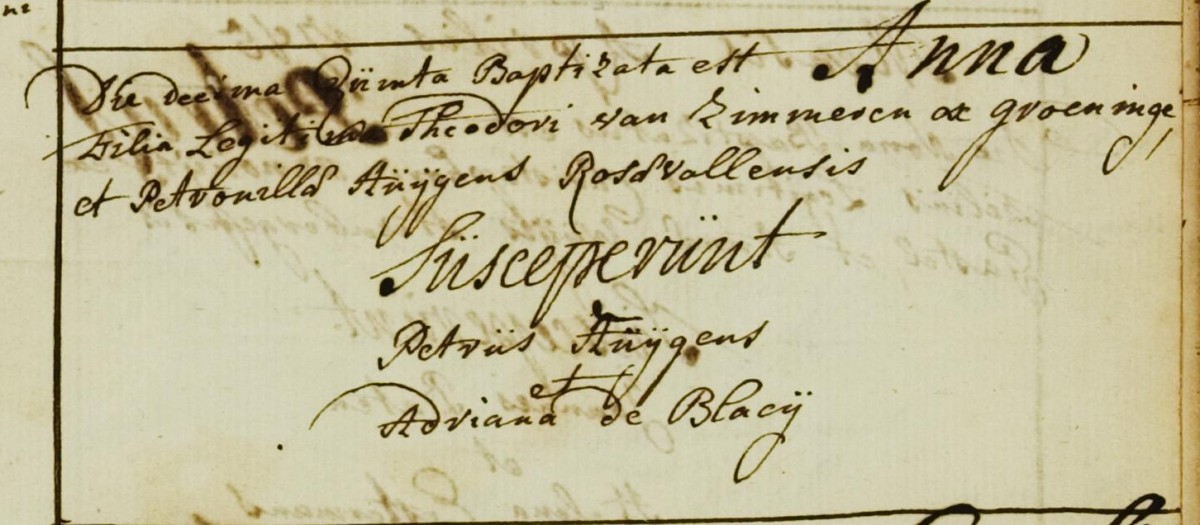 Die decima Quinta Baptizata est Anna
Filia Legitima Theodori van Zimmeren ex groeninge,
et Petronilla Hüÿgens Rosavallensis
Süsceperünt
Petrüs Hüÿgens
et
Adriana de Blacÿ